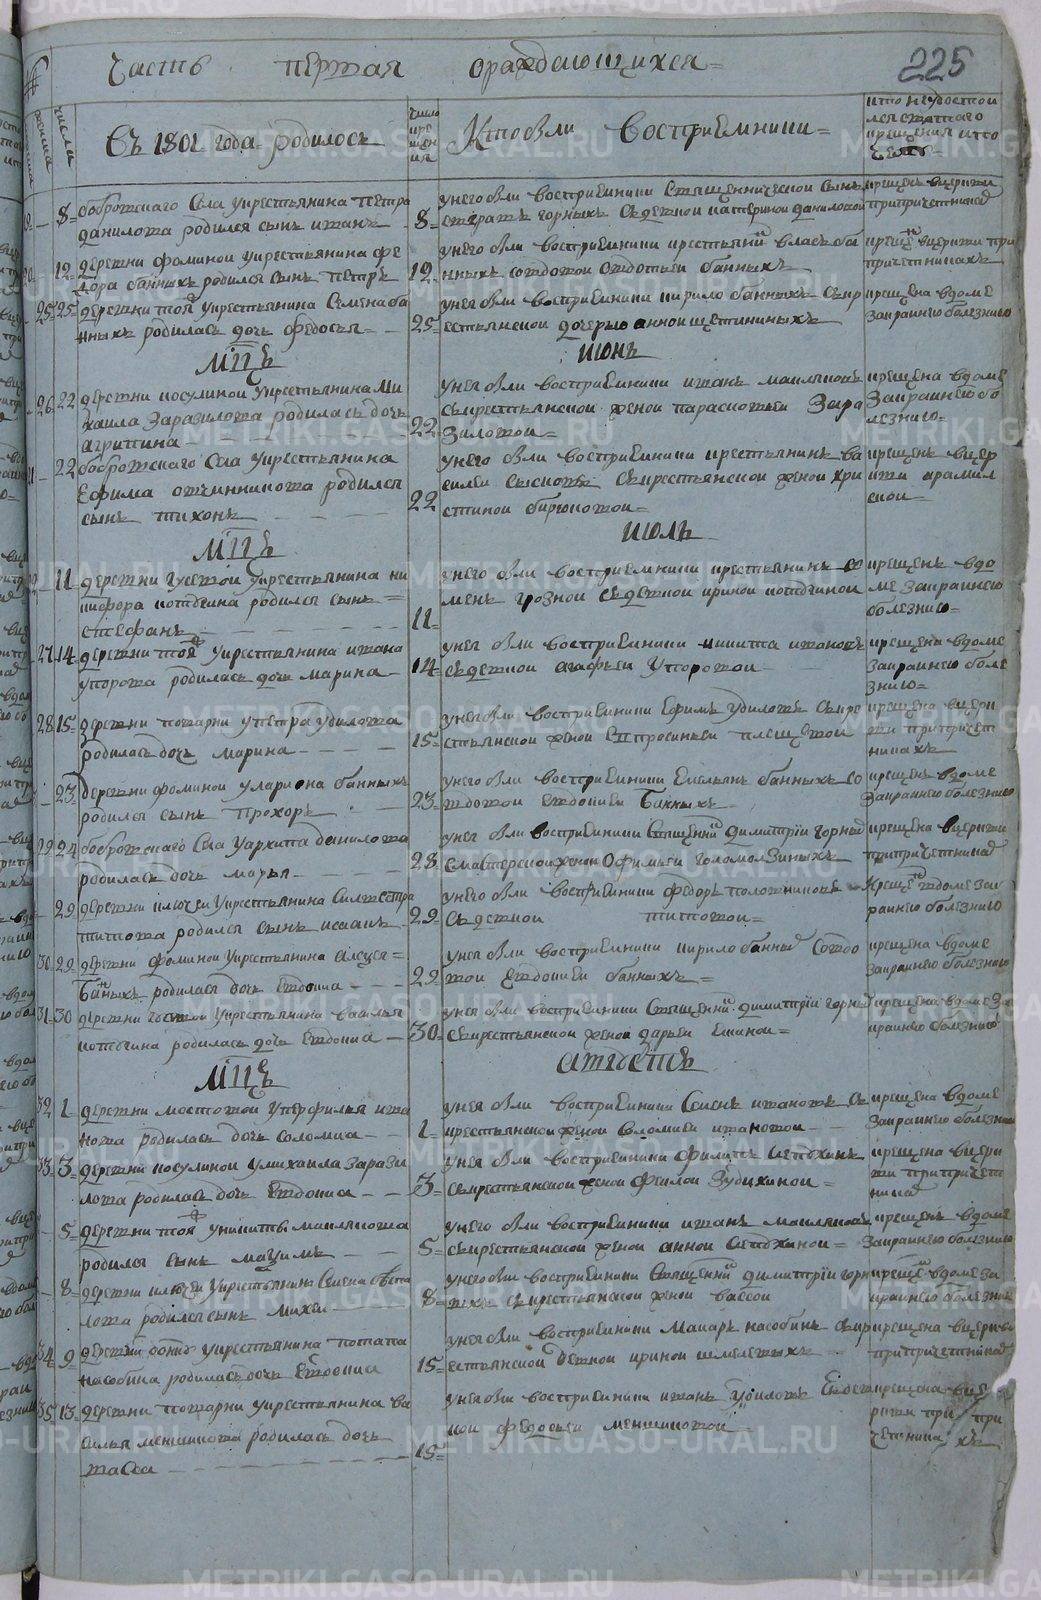 Часть первая о раждающихся
225
числа
Въ 1801 года родилось
Кто были восприемники
8 бобровскаго села у крестьянина петра
данилова родился сынъ иванъ
8 у него были восприемники священнической сынъ
горныхъ съ девкой катериной даниловой
крещенъ в церкви
при причетникахъ
12 деревни фоминой у крестьянина фе
дора банныхъ родился сынъ петръ
12 у него были восприемники крестьянинъ власъ ба
нныхъ со вдовой авдотьей банныхъ
крещенъ в церкви при
причетникахъ
25 25 деревни тоя у крестьянина семена ба
нныхъ родилась дочь федосья
25 у нея были восприемники кирило банныхъ съ кр
естьянской дочерью анной щетининыхъ
крещена в доме
за крайнею болезнию
мцъ
июнь
26 22 деревни косулиной у крестьянина ми
хаила заразилова родилась дочь
агрипина
22 у нея были восприемники иванъ маклаковъ
съ крестьянской женой парасковьей зара
зиловой
крещена в доме
за крайнею бо
лезнию
22 бобровскаго села у крестьянина
ефима овчинникова родился
сынъ тихонъ
22 у него были восприемники крестьянинъ ва
силей сысковъ съ крестьянской женой хри
стиной бирюковой
крещенъ в цер
кви арамил
ской
мцъ
июль
11 деревни гусевой у крестьянина ни
кифора котогина родился сынъ
стефанъ
11 у него были восприемники крестьянинъ се
менъ грозной съ девкой ириной
крещенъ в до
ме за крайнею
болезнию
27 14 деревни тоя у крестьянина ивана
упорова родилась дочь марина
14 у нея были восприемники никита ивановъ
съ девкой агафьей упоровой
крещена в доме
за крайнею боле
знию
28 15 деревни токарни у петра удилова
родилась дочь марина
15 у нея были восприемники ефимъ удиловъ съ кре
стьянской женой епросиньей плещевой
крещена в церк
ви при причет
никахъ
23 деревни фоминой у лариона банныхъ
родился сынъ прохоръ
23 у него были восприемники емельянъ банныхъ со
вдовой евдокией банныхъ
крещенъ в доме
за крайнею болезнию
29 24 бобровскаго села у архипа данилова
родилась дочь марья
28 у нея были восприемники священникъ димитрий горный
с мастерской женой офимьей голомолзиныхъ
крещена в церкви
при причетникахъ
29 деревни ключей у крестьянина силвестра
титова родился сынъ исаакъ
29 у него были восприемники федоръ половниковъ
съ девкой титовой
крещенъ в доме за к
райнею болезнию
30 29 деревни фоминой у крестьянина алексея
банныхъ родилась дочь евдокиа
29 у нея были восприемники кирило банных со вдо
вой евдокией банныхъ
крещена в доме
за крайнею болезнию
31 30 деревни гусевой у крестьянина василья
родилась дочь евдокиа
30 у нея были восприемники священникъ димитрий горный
съ крестьянской женой дарьей
крещена в доме за
крайнею болезнию
мцъ
августъ
32 1 деревни мостовой у перфилья ива
нова родилась дочь соломиа
1 у нея были восприемники семенъ ивановъ съ
крестьянской женой соломией ивановой
крещена в доме
за крайнею болезнию
33 3 деревни косулиной у михаила зарази
лова родилась дочь евдокиа
3 у нея были восприемники филипъ
съ крестьянской женой феклой зубихиной
крещена в церк
ви при причет
никах
5 деревни тоя у никиты маклакова
родился сынъ мазимъ
5 у него были восприемники иванъ маклаковъ
съ крестьянской женой анной
крещенъ в доме
за крайнею болезнию
8 деревни ключей у крестьянина семена
родился сынъ михей
8 у него были восприемники священникъ димитрий горн
ыхъ съ крестьянской женой вассой
крещенъ в доме за
крайнею болезнию
34 9 деревни у крестьянина потапа
насобина родилась дочь евдокиа
15 у нея были восприемники макаръ насобинъ съ кр
естьянской девкой ириной шмелевыхъ
крещена в церкви
при причетникахъ
35 13 деревни токарни у крестьянина ва
силья меншикова родилась дочь
васса
15 у нея были восприемники иванъ удиловъ съ дев
кой федосьей меншиковой
крещена в це
ркви при при
четникахъ